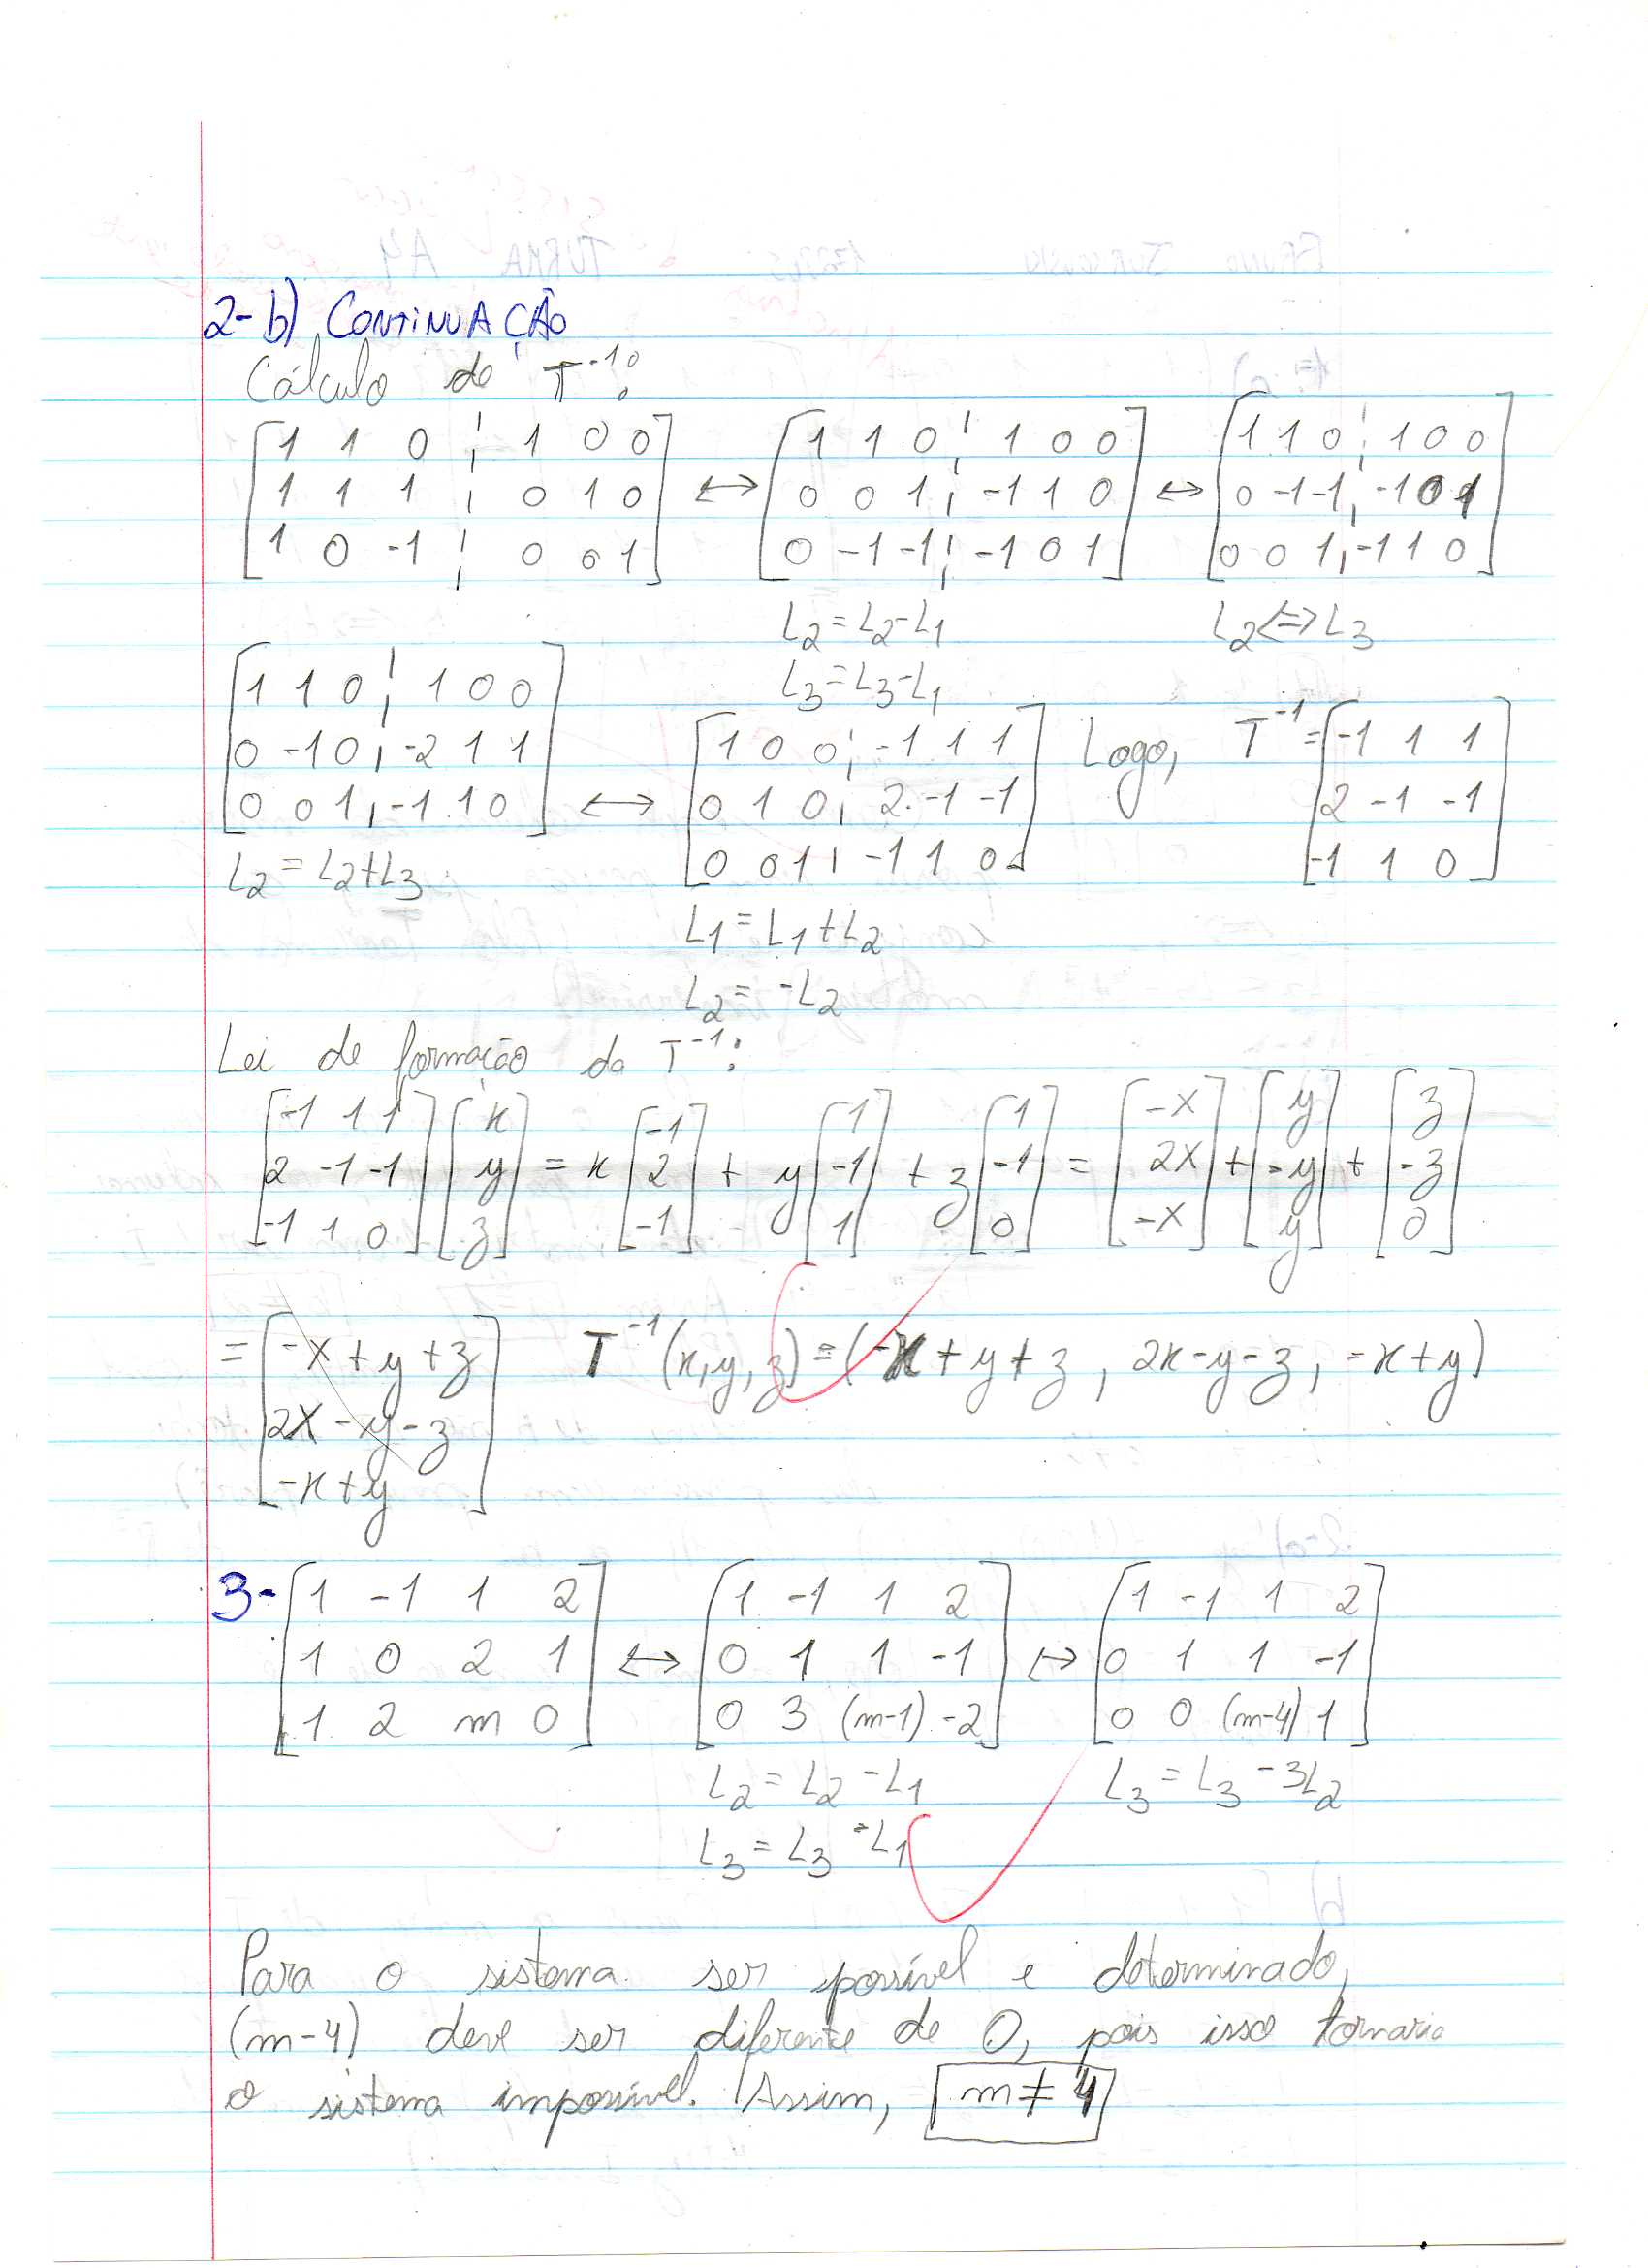 2-b) CONTINUAÇÃO
Cálculo de T⁻¹:
[1 1 0 ¦ 1 0 0] ↔ [1 1 0 ¦ 1 0 0] ↔ [1 1 0 ¦ 1 0 0]
[1 1 1 ¦ 0 1 0] [0 0 1 ¦ -1 1 0] [0 -1 -1 ¦ -1 0 1]
[1 0 -1 ¦ 0 0 1] [0 -1 -1 ¦ -1 0 1] [0 0 1 ¦ -1 1 0]
L2 = L2-L1 L2 <=> L3
L3 = L3-L1
[1 1 0 ¦ 1 0 0] ↔ [1 0 0 ¦ -1 1 1] Logo, T⁻¹ = [-1 1 1]
[0 -1 0 ¦ -2 1 1] [0 1 0 ¦ 2 -1 -1] [2 -1 -1]
[0 0 1 ¦ -1 1 0] [0 0 1 ¦ -1 1 0] [-1 1 0]
L2 = L2+L3
L1 = L1+L2
L2 = -L2
Lei de formação da T⁻¹:
[-1 1 1] [x] [-1] [1] [1] [-x] [y] [z]
[2 -1 -1] [y] = x [2] + y [-1] + z [-1] = [2x] + [-y] + [-z]
[-1 1 0] [z] [-1] [1] [0] [-x] [y] [0]
= [-x+y+z] T⁻¹(x,y,z) = (-x+y+z, 2x-y-z, -x+y)
[2x-y-z]
[-x+y]
3- [1 -1 1 2] ↔ [1 -1 1 2] ↔ [1 -1 1 2]
[1 0 2 1] [0 1 1 -1] [0 1 1 -1]
[1 2 m 0] [0 3 (m-1) -2] [0 0 (m-4) 1]
L2 = L2 - L1 L3 = L3 - 3L2
L3 = L3 - L1
Para o sistema ser possível e determinado,
(m-4) deve ser diferente de 0, pois isso tornaria
o sistema impossível. Assim, m ≠ 4